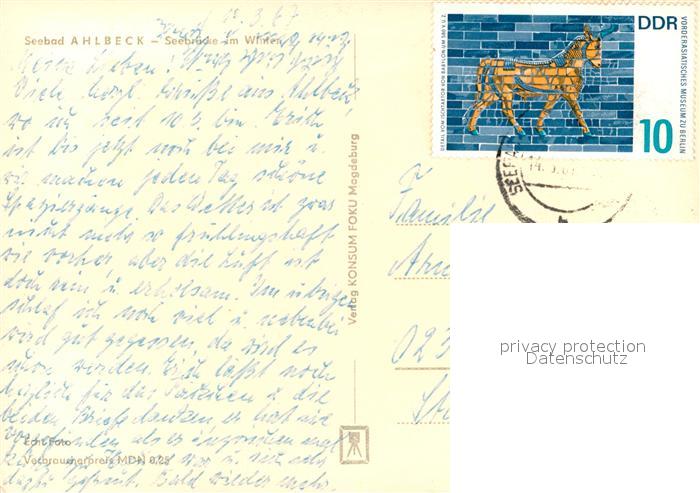 13.3.67
Seebad AHLBECK – Seebrücke im Winter
Meine Lieben!
Viele herzl. Grüße aus Ahlbeck,
wo ich seit 10.3. bin. Erich
ist bis jetzt noch bei mir u.
wir machen jeden Tag schöne
Spaziergänge. Das Wetter ist zwar
nicht mehr so frühlingshaft
wie vorher, aber die Luft ist
doch rein u. erholsam. Im übrigen
schlaf ich noch viel u. nebenbei
wird gut gegessen, da wird es
schon werden. Erich läßt noch
für das Päckchen u. die
beiden Briefe danken, er hat sie
vorgefunden als er
war u. sich sehr
gefreut. Bald wieder mehr.
Echt Foto
Verbraucherpreis MDN 0,25
Verlag KONSUM FOKU Magdeburg
DDR
10
VORDERASIATISCHES MUSEUM ZU BERLIN
DETAIL VOM ISCHTARTOR VON BABYLON UM 580 V. U. Z.
SEEBA
Familie
023
privacy protection
Datenschutz